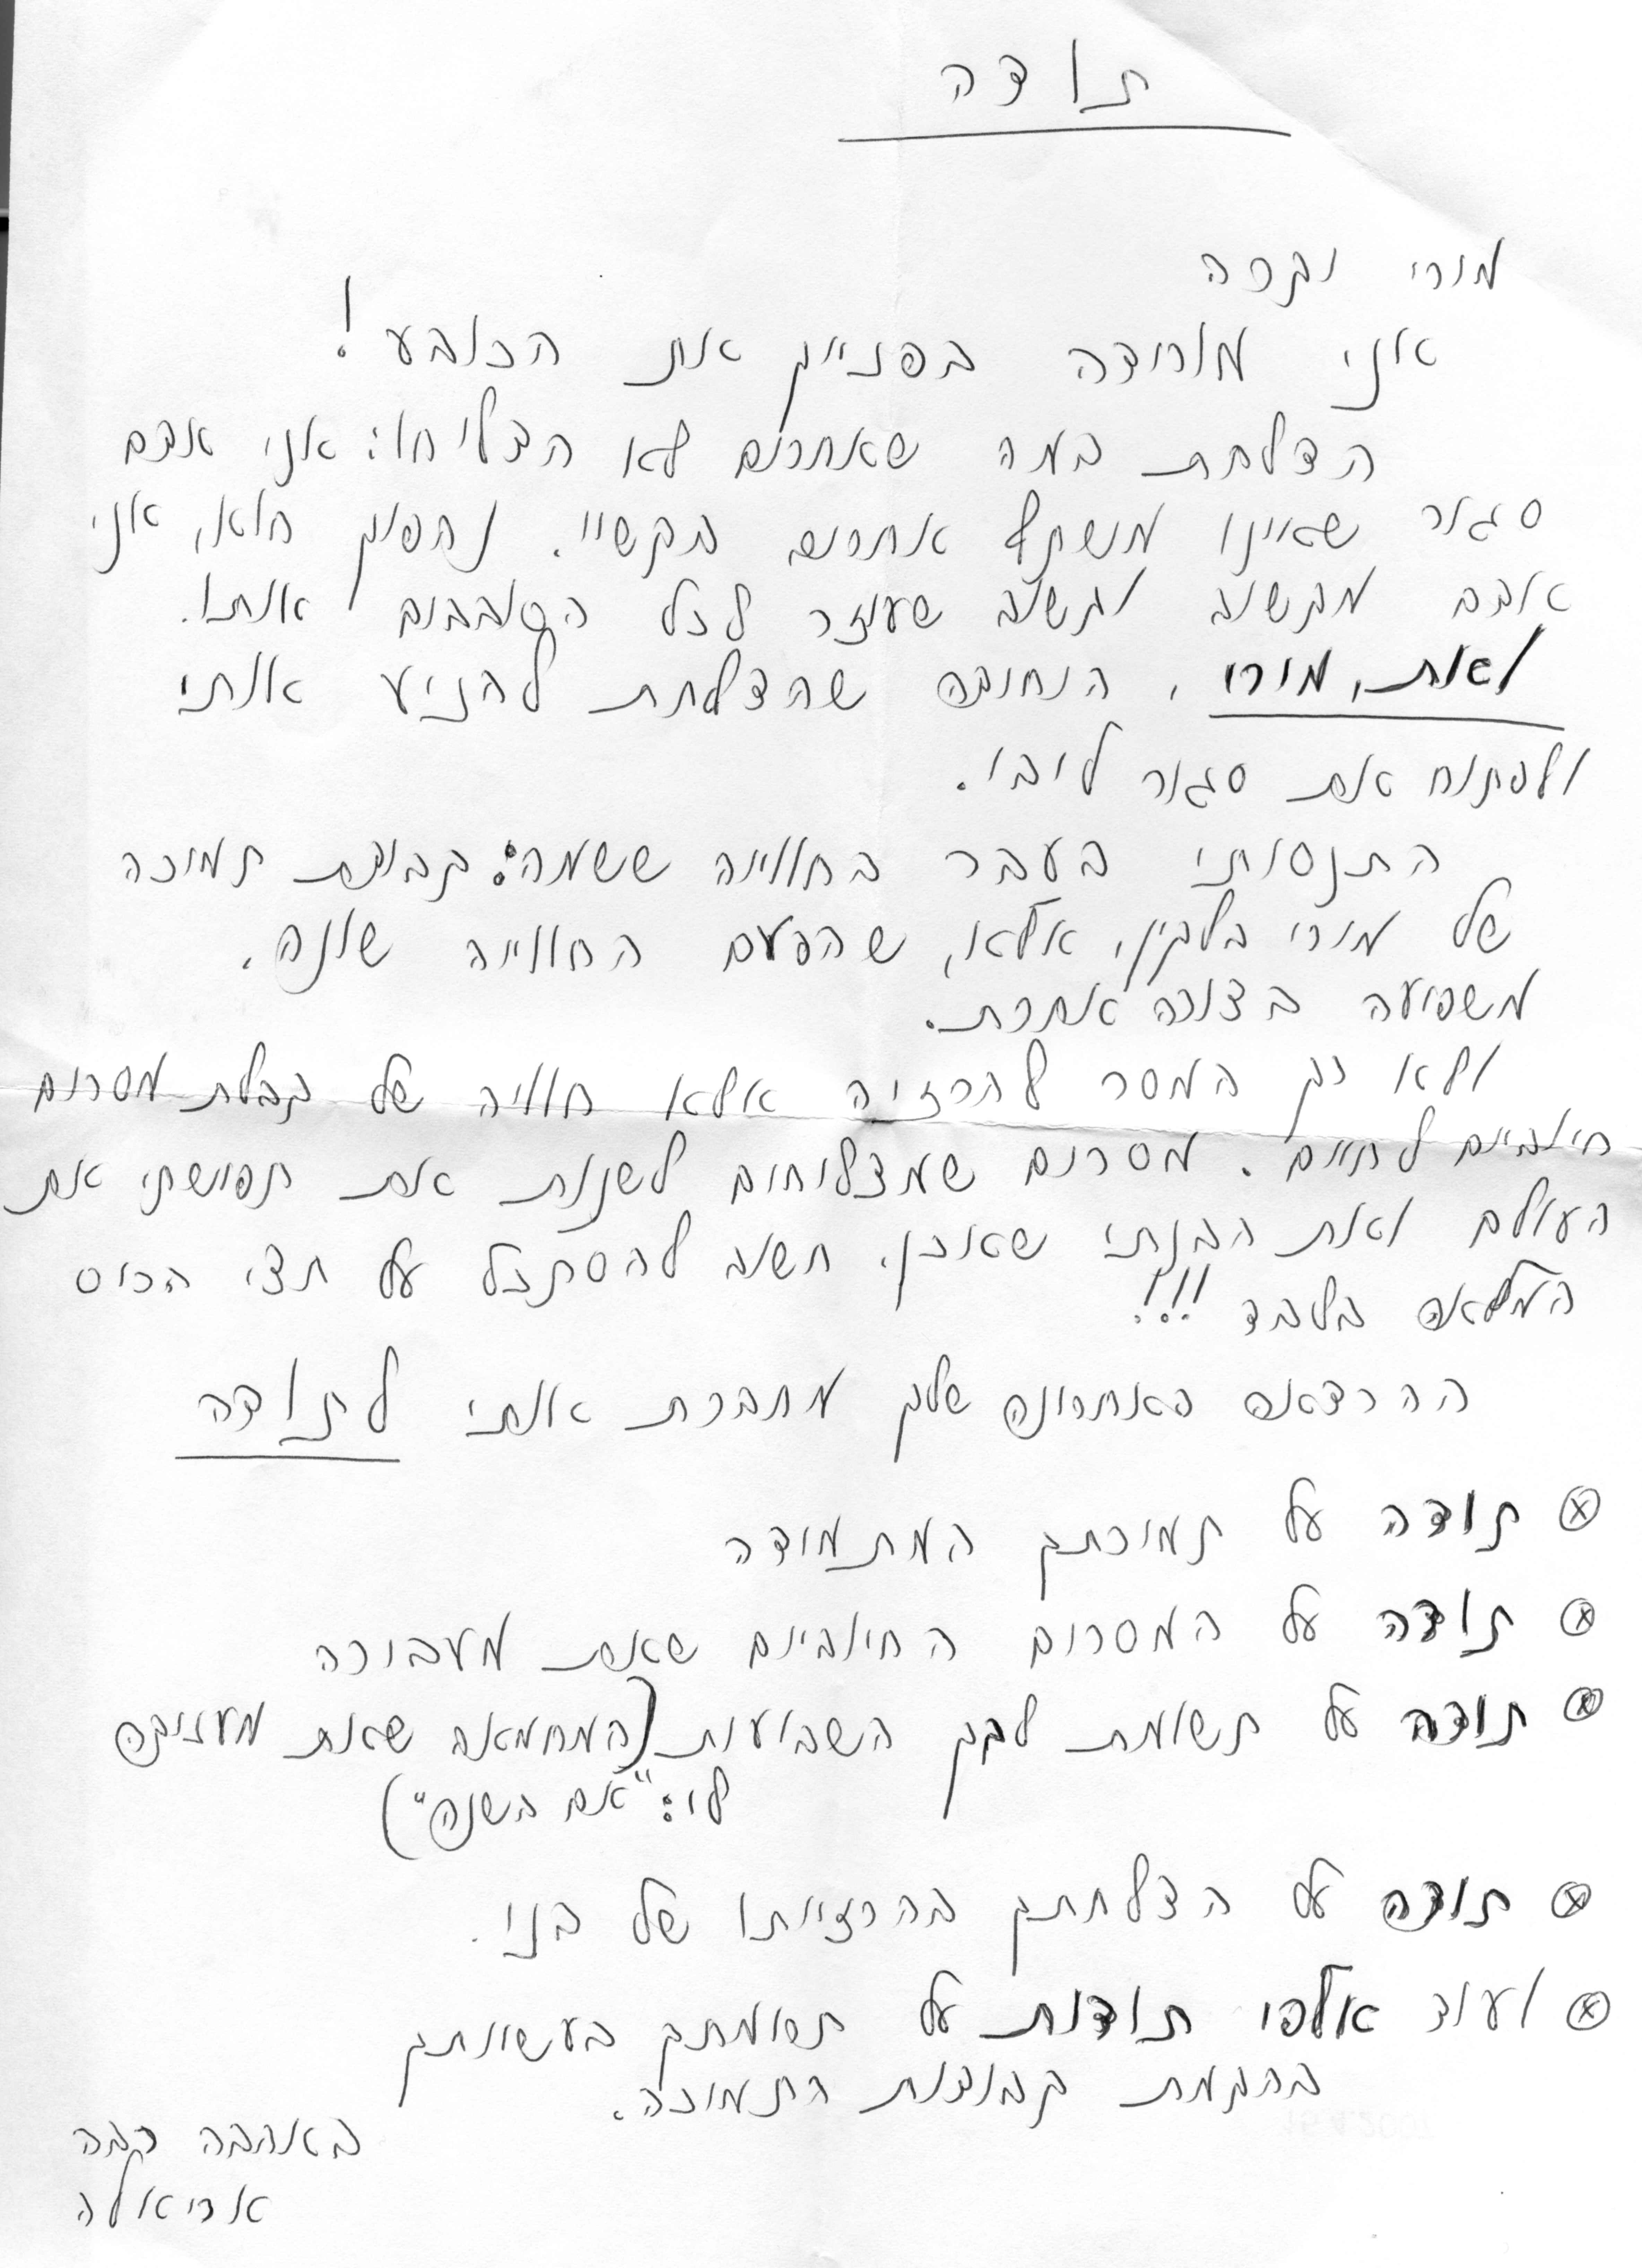 תודה
מורי יקרה
אני מורידה בפנייך את הכובע!
הצלחת במה שאחרים לא הצליחו: אני אדם
סגור שאינו משתף אחרים בקשיי. נהפוך הוא, אני
אדם מקשיב וקשוב שעוזר לכל הסובבים אותו.
ואת, מורי, היחידה שהצלחת להניע אותי
ולפתוח את סגור ליבי.
התנסותי בעבר בחווייה ששמה: קבוצת תמיכה
של מורי בלקין, אלא, שהפעם החווייה שונה,
משפיעה בצורה אחרת.
ולא רק המסר להרזיה אלא חוויה של קבלת מסרים
חיוביים לחיים. מסרים שמצליחים לשנות את תפישתי את
העולם ואת הבנתי שאוכן, חשוב להסתכל על חצי הכוס
המלאה בלבד!!!
ההרצאה האחרונה שלך מחברת אותי לתודה
⊗ תודה על תמיכתך המתמידה
⊗ תודה על המסרים החיוביים שאת מעבירה
⊗ תודה על תשומת לבך השבועית (המחמאה שאת מעניקה
לי: "אם השנה")
⊗ תודה על הצלחתך בהרזייתו של בני.
⊗ ועוד אלפי תודות על תרומתך בעשייתך
בהקמת קבוצות התמיכה.
באהבה רבה
אריאלה